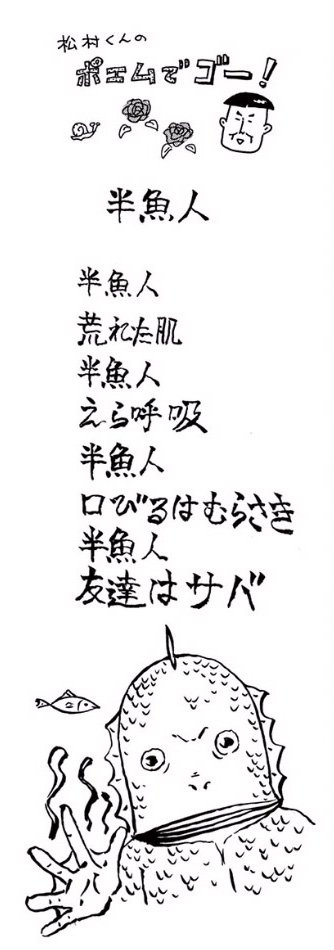 松村くんの
ポエムでゴー!
半魚人
半魚人
荒れた肌
半魚人
えら呼吸
半魚人
口びるはむらさき
半魚人
友達はサバ